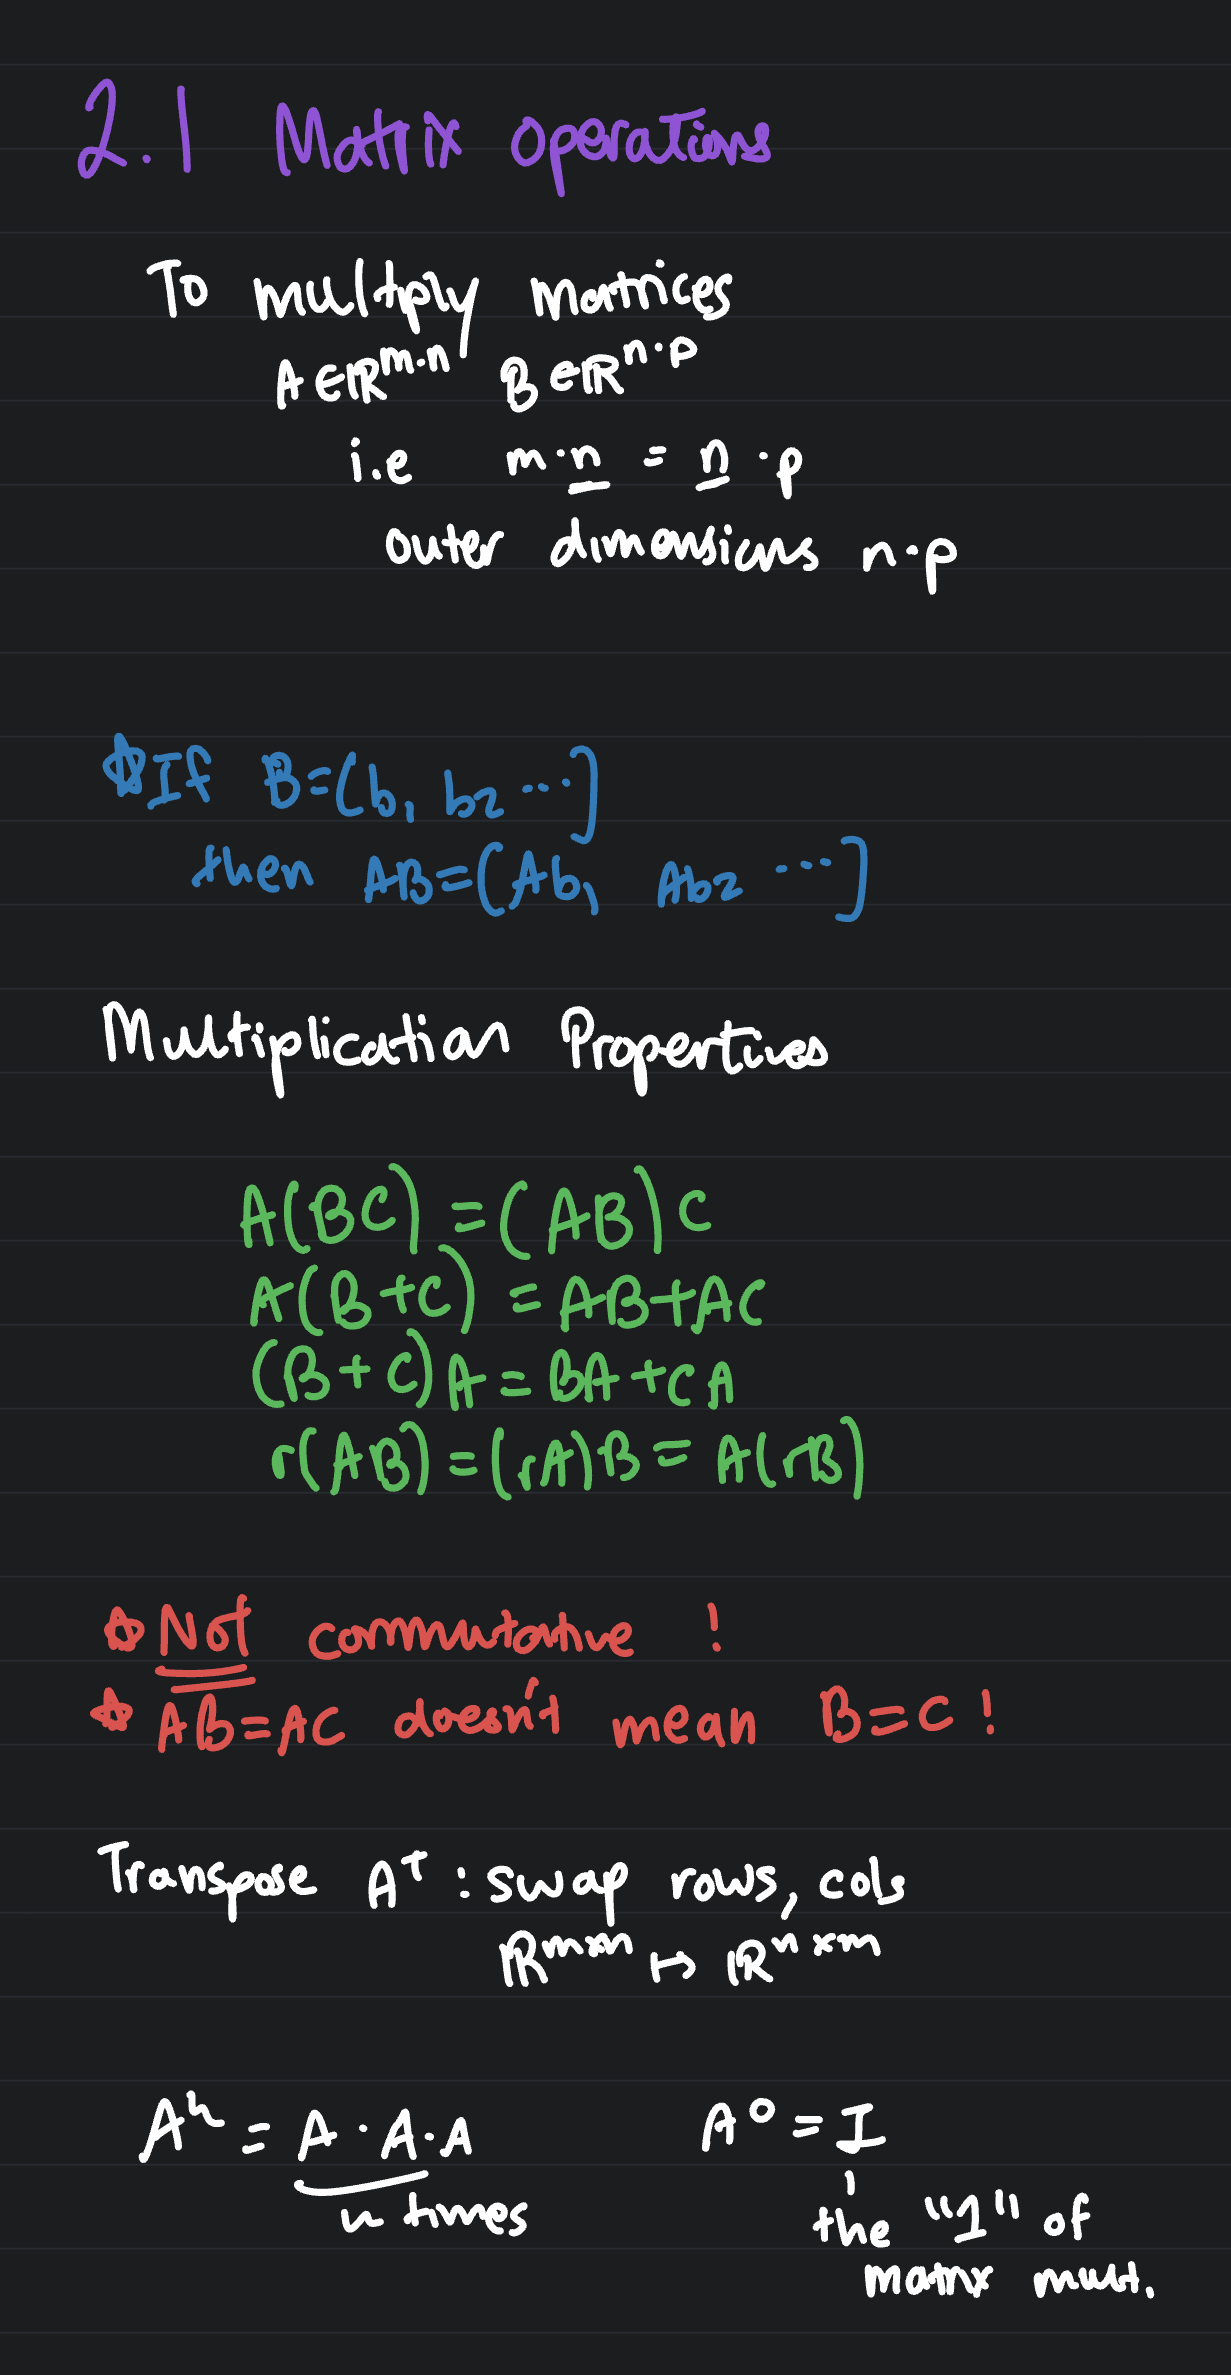 2.1 Matrix operations
To multiply matrices
A∈ℝ^m·n B∈ℝ^n·p
i.e m·n = n·p
outer dimensions n·p
☆If B=(b₁ b₂ ···]
then AB=(Ab₁ Ab₂ ···]
Multiplication Properties
A(BC) = (AB)C
A(B+C) = AB+AC
(B+C)A = BA+CA
r(AB) = (rA)B = A(rB)
☆ Not commutative !
☆ AB=AC doesn't mean B=C!
Transpose Aᵀ: swap rows, cols
ℝ^m×n ↦ ℝ^n×m
Aⁿ = A·A·A A⁰ = I
n times the "1" of
matrix mult.